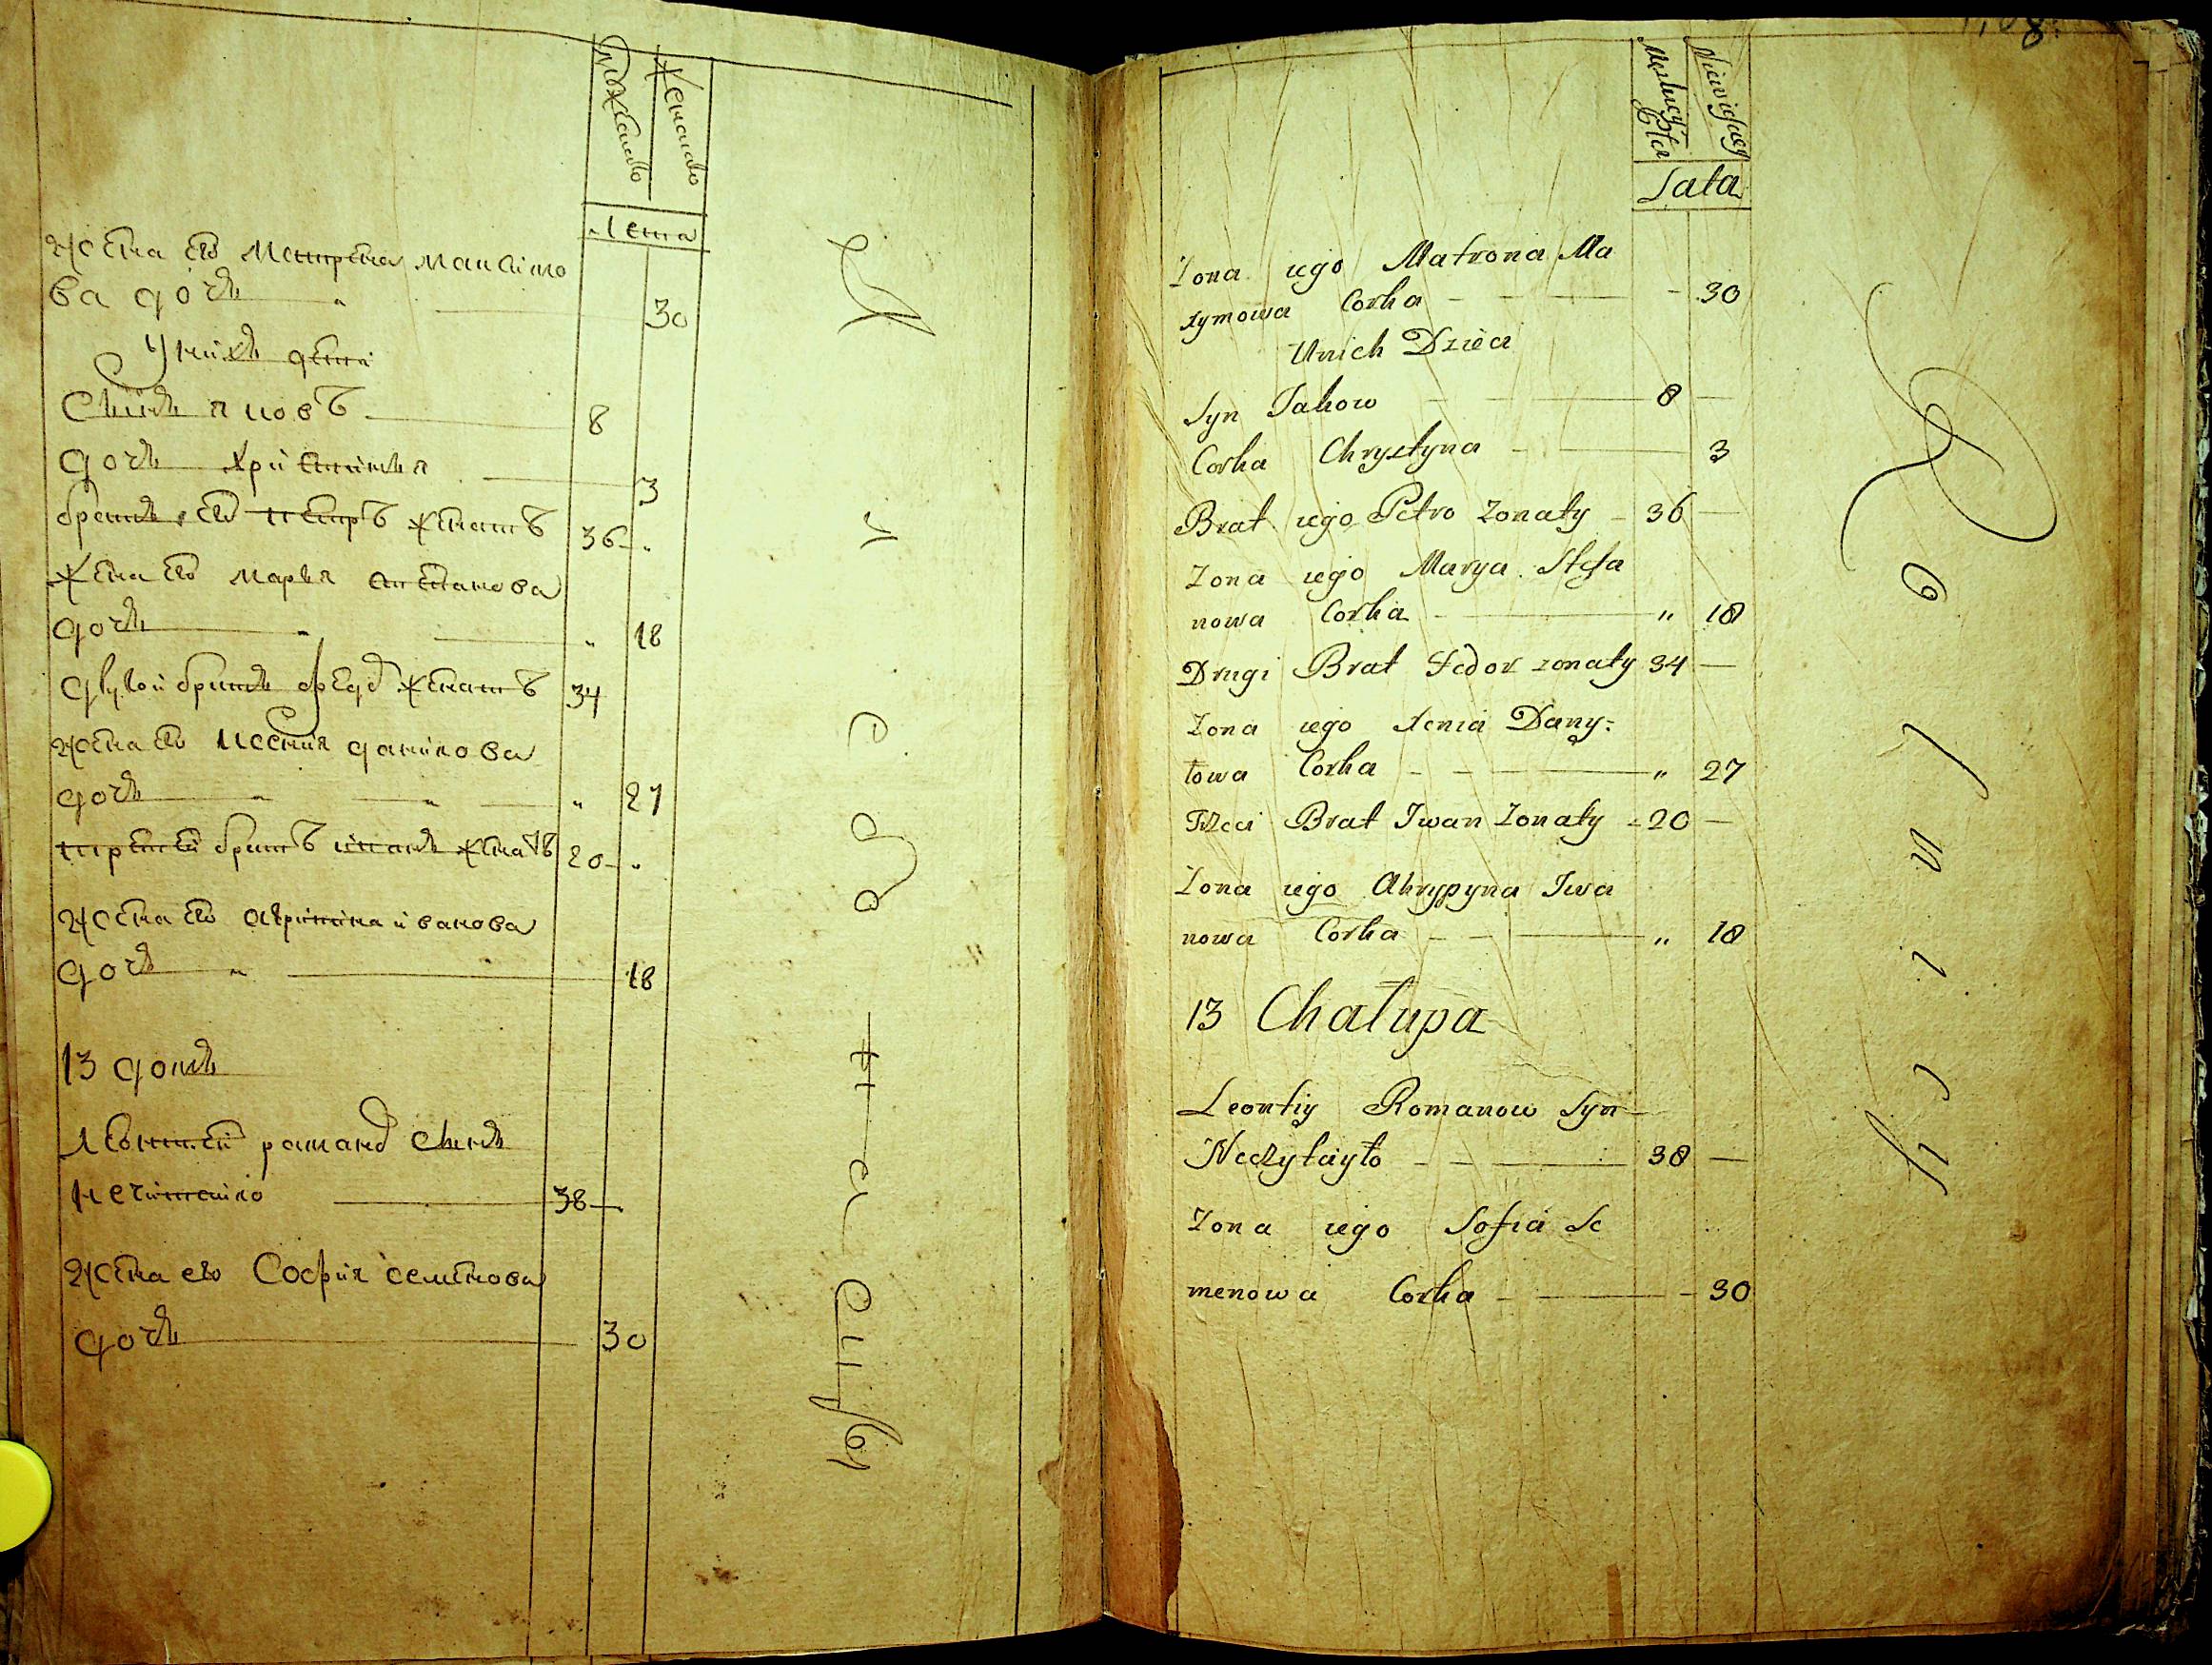 Мужеско
Женско
Лета
жена его матрена максимо
ва дочь 30
У них дети
Сын яков 8
дочь христинья 3
брат его петръ женатъ 36
жена его марья степанова
дочь 18
другой брат федо женатъ 34
жена его ксения данилова
дочь 27
третей братъ иван женатъ 20
жена его акрипина иванова
дочь 18
13 домъ
леонтей романо сынъ
нечитайло 38
жена ево София семенова
дочь 30
Męskiey
Płci
Niewiescey
Lata
Zona iego Matrona Ma
xymowa Corka 30
Unich Dzieci
Syn Jakow 8
Corka Chrystyna 3
Brat iego Petro Zonaty 36
Zona iego Marya Stefa
nowa Corka " 18
Drugi Brat Fedor zonaty 34
Zona iego Xenia Dany:
łowa Corka " 27
Trzeci Brat Iwan Zonaty 20
Zona iego Ahrypyna Iwa
nowa Corka " 18
13 Chałupa
Leontiy Romanow Syn
Neczytayło 38
Zona iego Sofia Se
menowa Corka 30